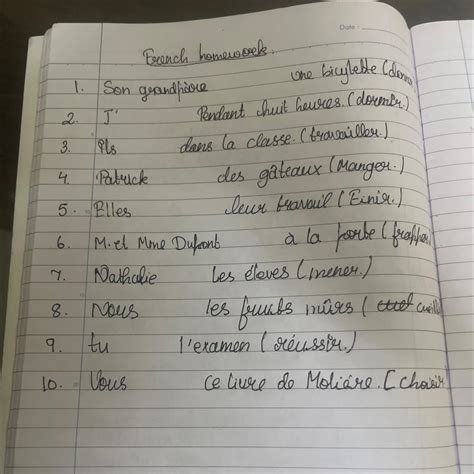 Date
French homework.
1. Son grandpère une bicylette (donner
2. J' Pendant huit heures. (dormir.)
3. Ils dans la classe. (travailler.)
4. Patrick des gâteaux (Manger.)
5. Elles leur travail (Finir.)
6. M. et Mme Dupont à la porte (frapper
7. Nathalie les élèves (mener.)
8. Nous les fruits mûrs ( cueill
9. tu l'examen (réussir.)
10. Vous ce livre de Molière. (choisir